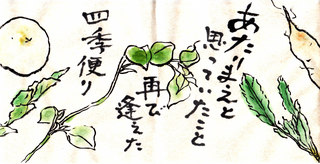 あたりまえと
思っていたこと
再び
逢えた
四季便り